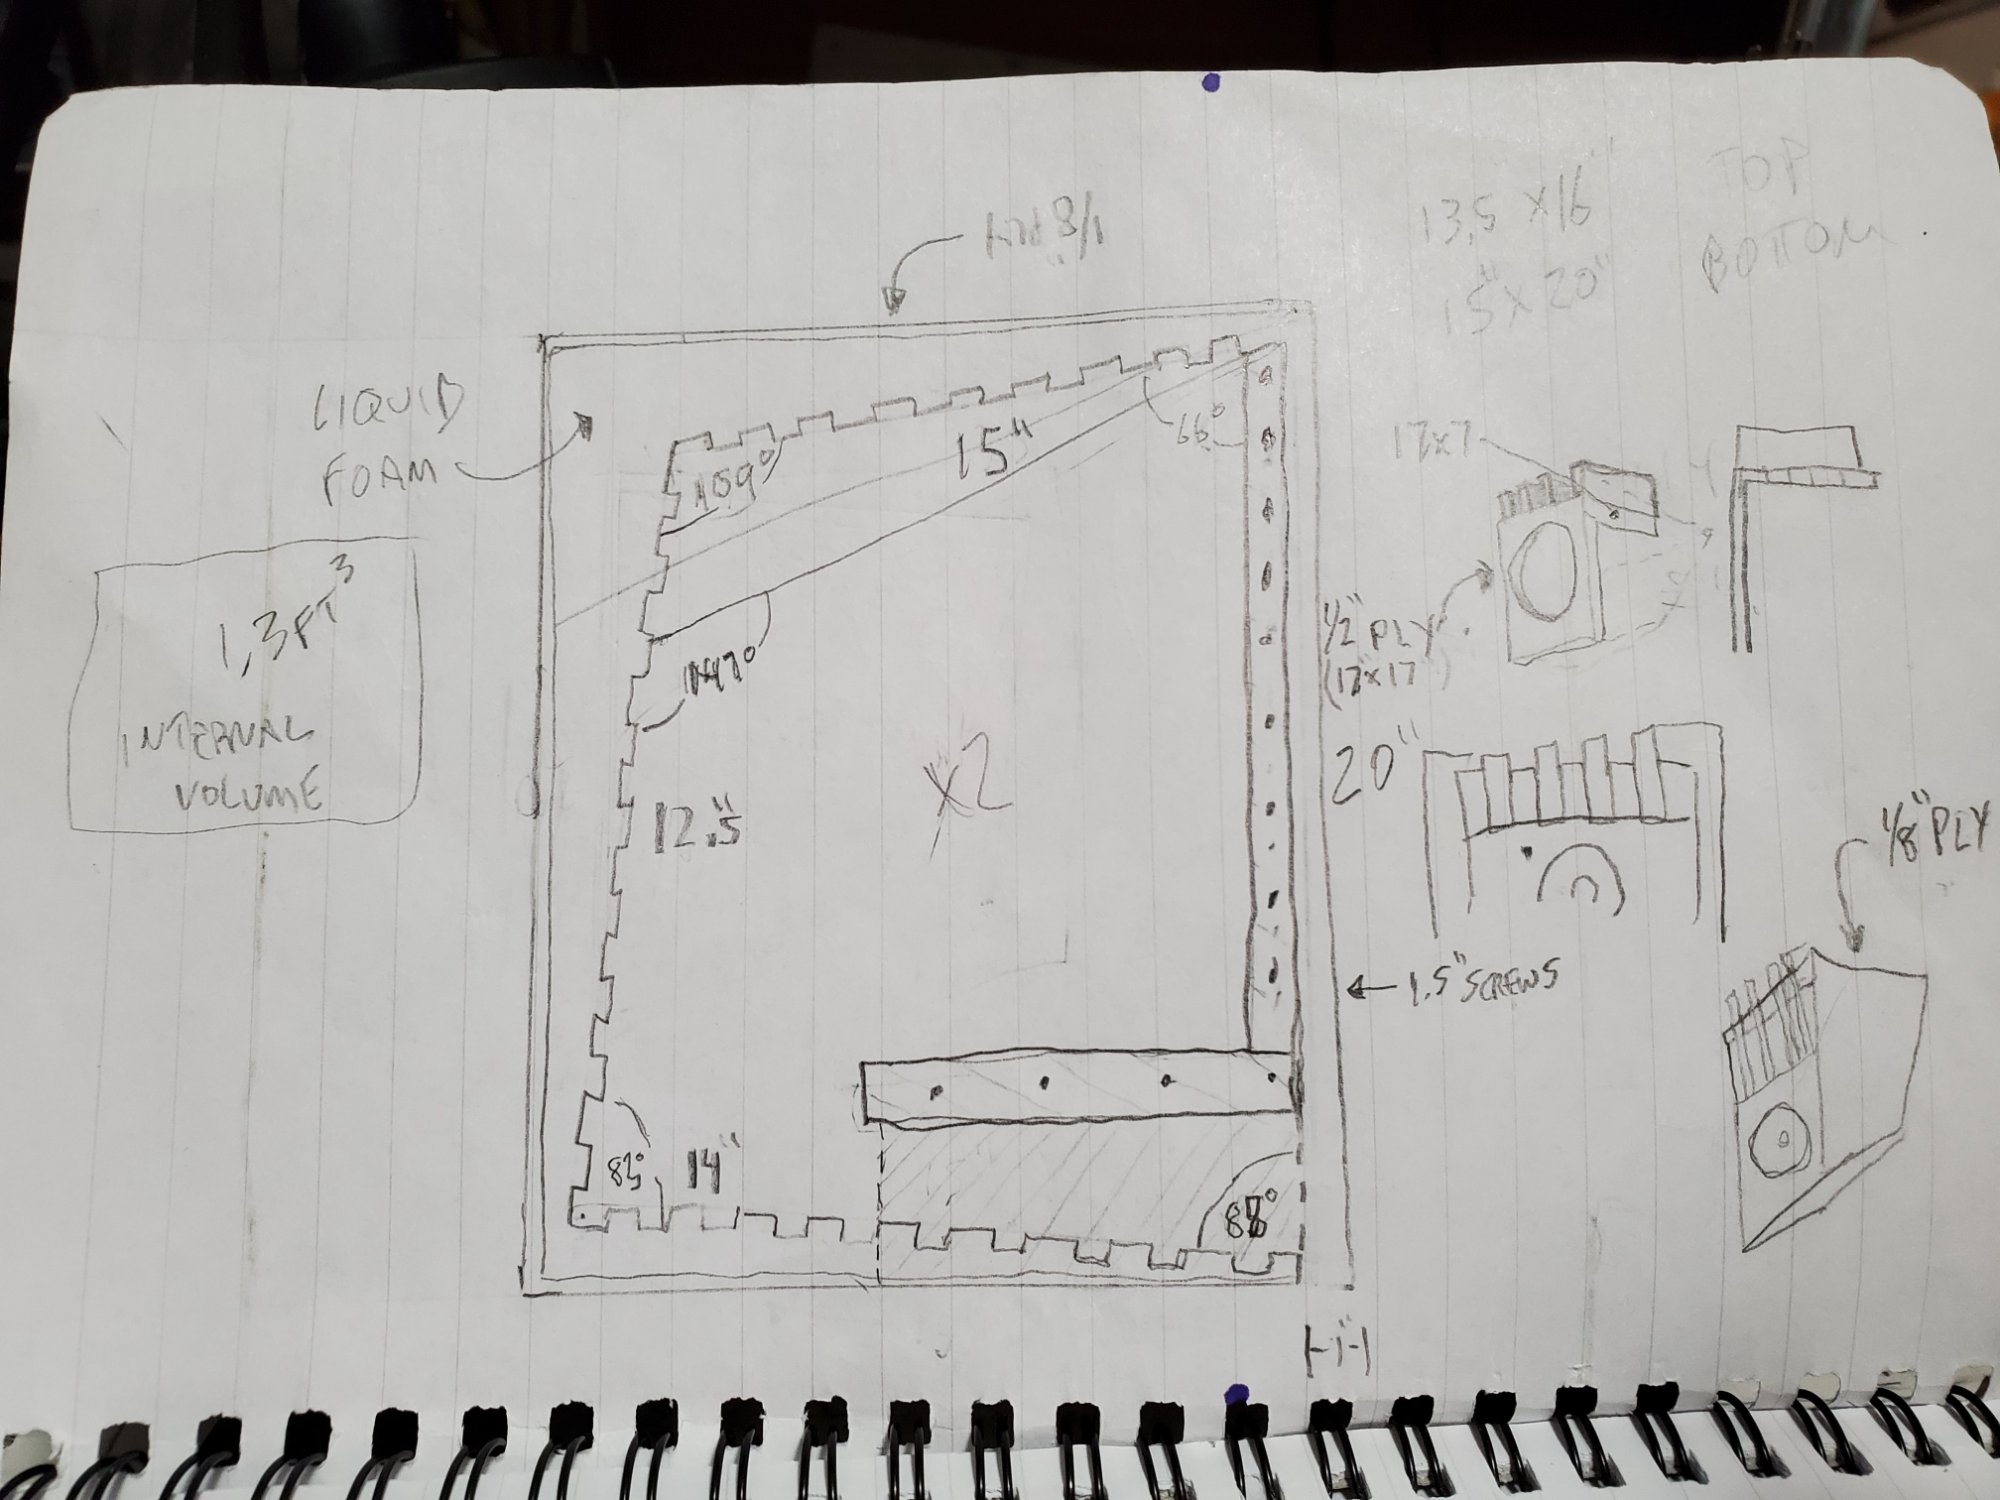 1/8 PLY
13.5 X 16" TOP
15" X 20" BOTTOM
LIQUID
FOAM
109°
15"
66°
17x7
1/2" PLY
(17x17")
1,3 FT³
INTERNAL
VOLUME
147°
12.5"
x2
20"
1/8" PLY
1.5" SCREWS
83°
14"
1"